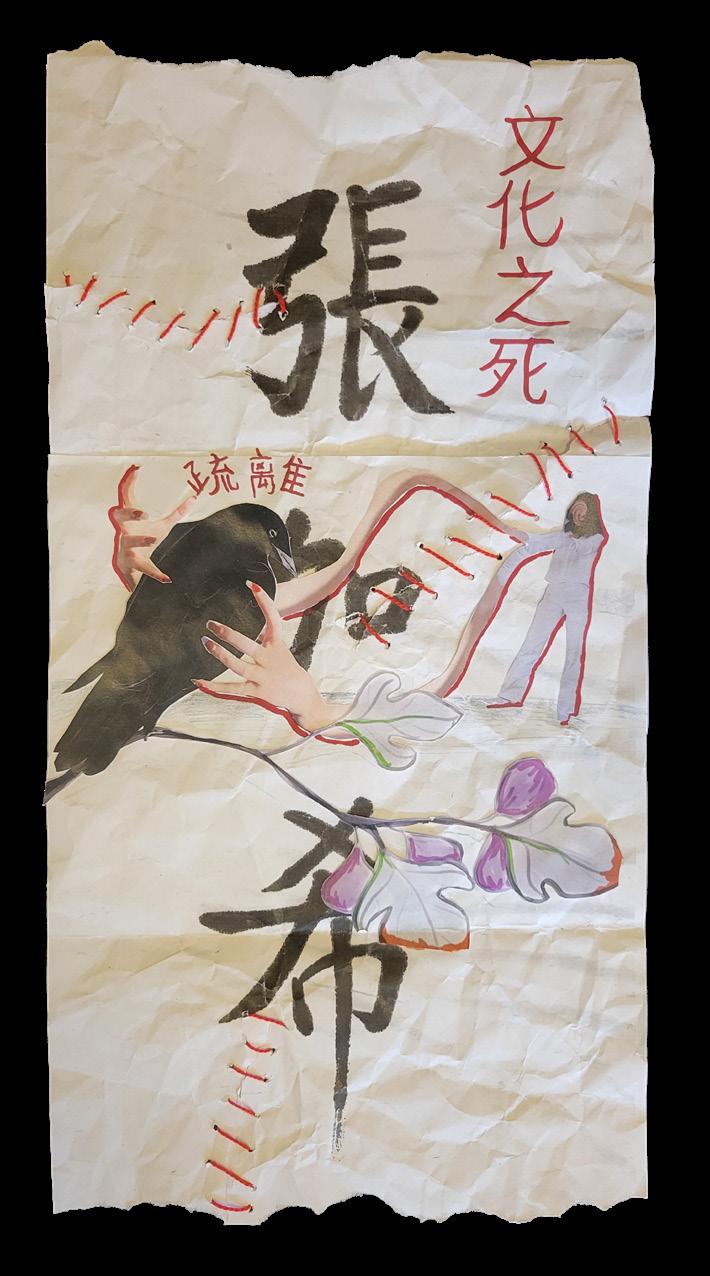 文化之死
張
疏離
希